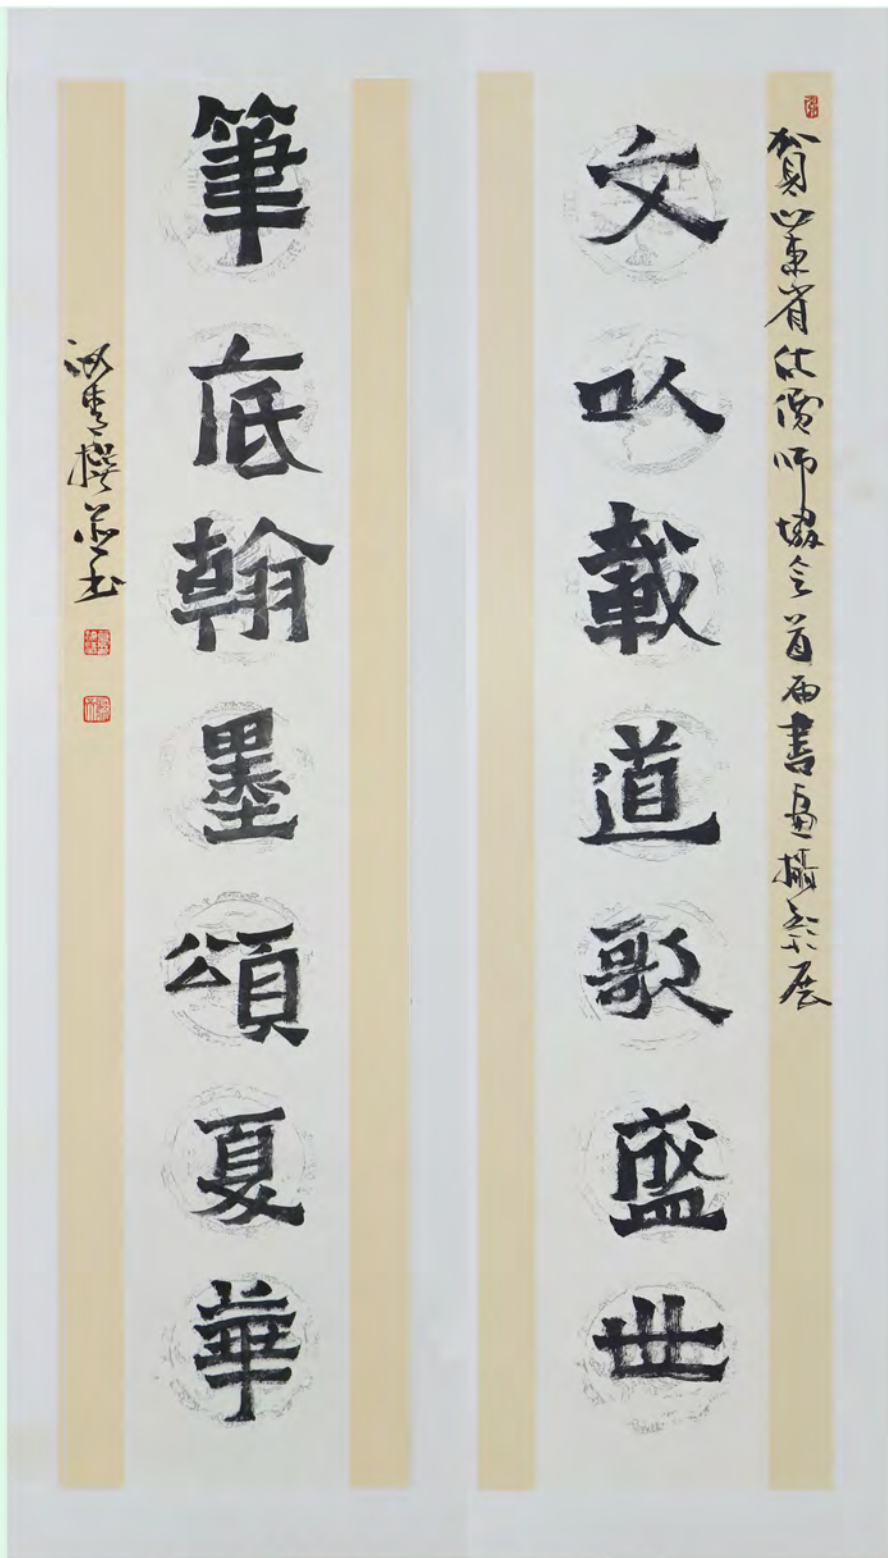 賀山東省估價師協会首届書畫攝影展
文以載道歌盛世
筆底翰墨頌夏華
撰并书